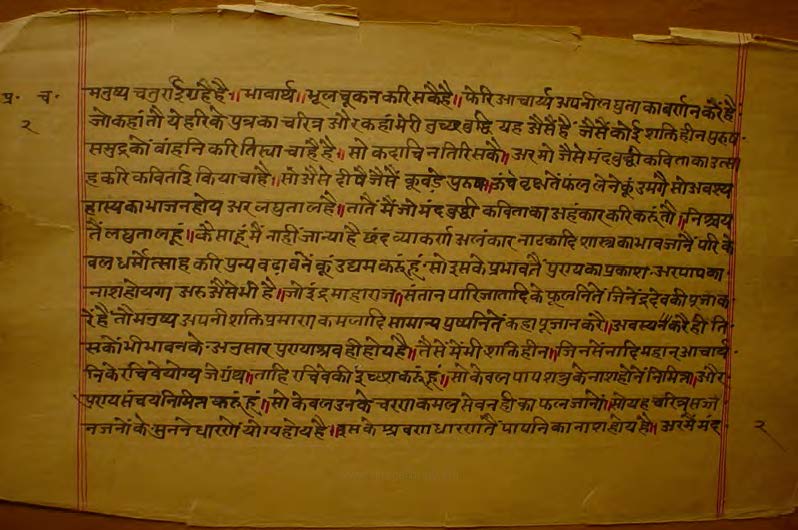 प्र. च.
२
मनुष्य चतुराई ग्रहै है॥ भावार्थ॥ भूल चूक न करि सकै है॥ फेरि आचार्य्य अपनी लघुता का बर्णन करै है
जो कहां तौ ये हरि के पुत्र का चरित्र और कहां मेरी तुच्छ बुद्धि यह अैसैं है जैसैं कोई शक्तिहीन पुरुष
समुद्र कों बांहनि करि तिस्या चाहै है॥ सो कदाचि न तिरि सकै॥ अर मो जैसे मंदबुद्धी कविता का उत्सा
ह करि कविताई किया चाहै॥ सो अैसे दीषै जैसैं कूबडे पुरुष ऊंचे बृक्षतें फल लेने कूं उमगै सो अवश्य
हास्य का भाजन होय अर लघुता लहै॥ तातैं मैं जो मंदबुद्धी कविता का अहंकार करि कहूं तौ॥ निश्चय
तैं लघुता लहूं॥ कैसा हूं मैं नाहीं जान्या है छंद व्याकर्ण अलंकार नाटकादि शास्त्र का भाव जानैं परि के
वल धर्मोत्साह करि पुन्य बढावनें कूं उद्यम करूं हूं सो इसके प्रभावतैं पुण्य का प्रकाश अर पाप का
नाश होयगा अरु अैसे भी है॥ जो इंद्र माहाराज॥ संतान पारिजातादि के फूलनितें जिनेंद्र देव की पूजा क
रै हैं तौ मनुष्य अपनी शक्ति प्रमाण कमलादि सामान्य पुष्पनितें कहा पूजा न करै॥ अवस्य करै ही ति
स कों भी भावन के अनुसार पुण्याश्रव ही होय है॥ तैसें मैं भी शक्तिहीन॥ जिनसेंनादि महान आचार्य
नि के रचिवे योग्य जे ग्रंथ॥ ताहि रचिवे की इच्छा करूं हूं॥ सो केवल पाप शत्रु के नाश होनें निमित्त॥ और
पुण्य संचय निमित्त करूं हूं॥ सो केवल उनके चरण कमल सेवन ही का फल जानों॥ सो यह चरित्र सज्ज
न जनों के सुननें धारणें योग्य होय है॥ इसके श्रवण धारणतैं पापनि का नाश होय है॥ अर मैं मंद
२